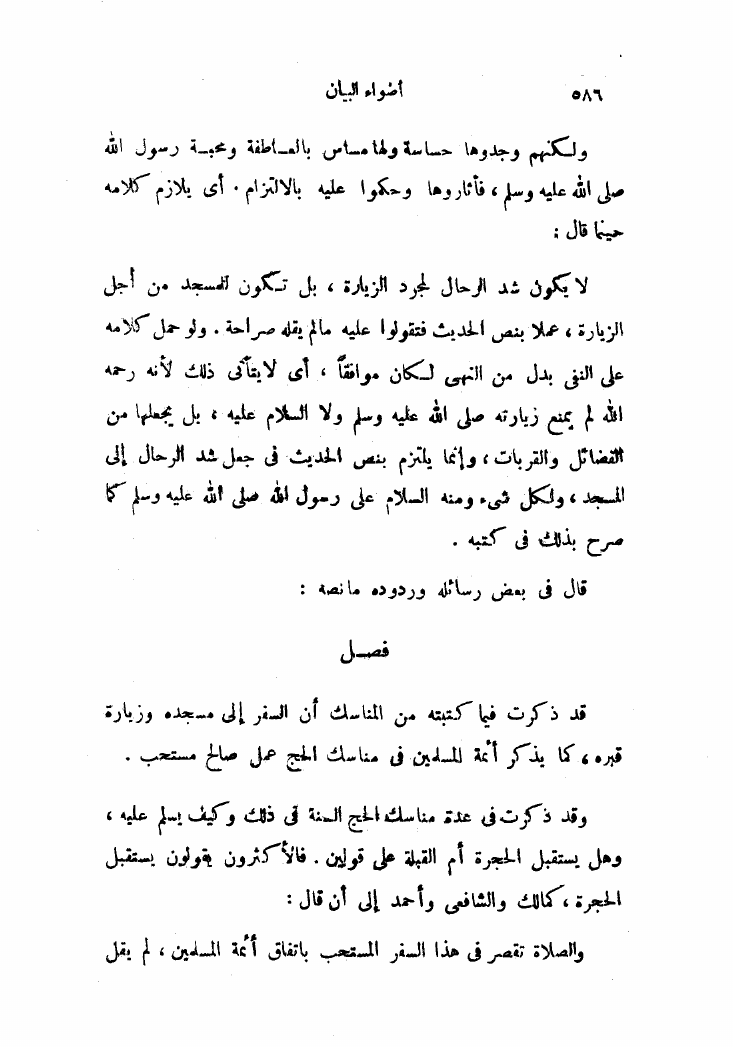 ٥٨٦ أضواء البيان
ولكنهم وجدوها حساسة ولها مساس بالعاطفة ومحبة رسول الله
صلى الله عليه وسلم ، فأثاروها وحكوا عليه بالالتزام . أى بلازم كلامه
حينما قال :
لا يكون شد الرحال لمجرد الزيارة ، بل تكون للمسجد من أجل
الزيارة ، عملا بنص الحديث فتقولوا عليه مالم يقله صراحة . ولو حمل كلامه
على النفى بدل من النهى لكان موافقاً ، أى لا يتأتى ذلك لأنه رحمه
الله لم يمنع زيارته صلى الله عليه وسلم ولا السلام عليه ، بل يجعلها من
الفضائل والقربات ، وإنما يلتزم بنص الحديث فى جعل شد الرحال إلى
المسجد ، ولكل شىء ومنه السلام على رسول الله صلى الله عليه وسلم كما
صرح بذلك فى كتبه .
قال فى بعض رسائله وردوده مانصه :
فصل
قد ذكرت فيما كتبته من المناسك أن السفر إلى مسجده وزيارة
قبره ، كما يذكر أئمة المسلمين فى مناسك الحج عمل صالح مستحب .
وقد ذكرت فى عدة مناسك الحج السنة فى ذلك وكيف يسلم عليه ،
وهل يستقبل الحجرة أم القبلة على قولين . فالأكثرون يقولون يستقبل
الحجرة ، كمالك والشافعى وأحمد إلى أن قال :
والصلاة تقصر فى هذا السفر المستحب باتفاق أئمة المسلمين ، لم يقل